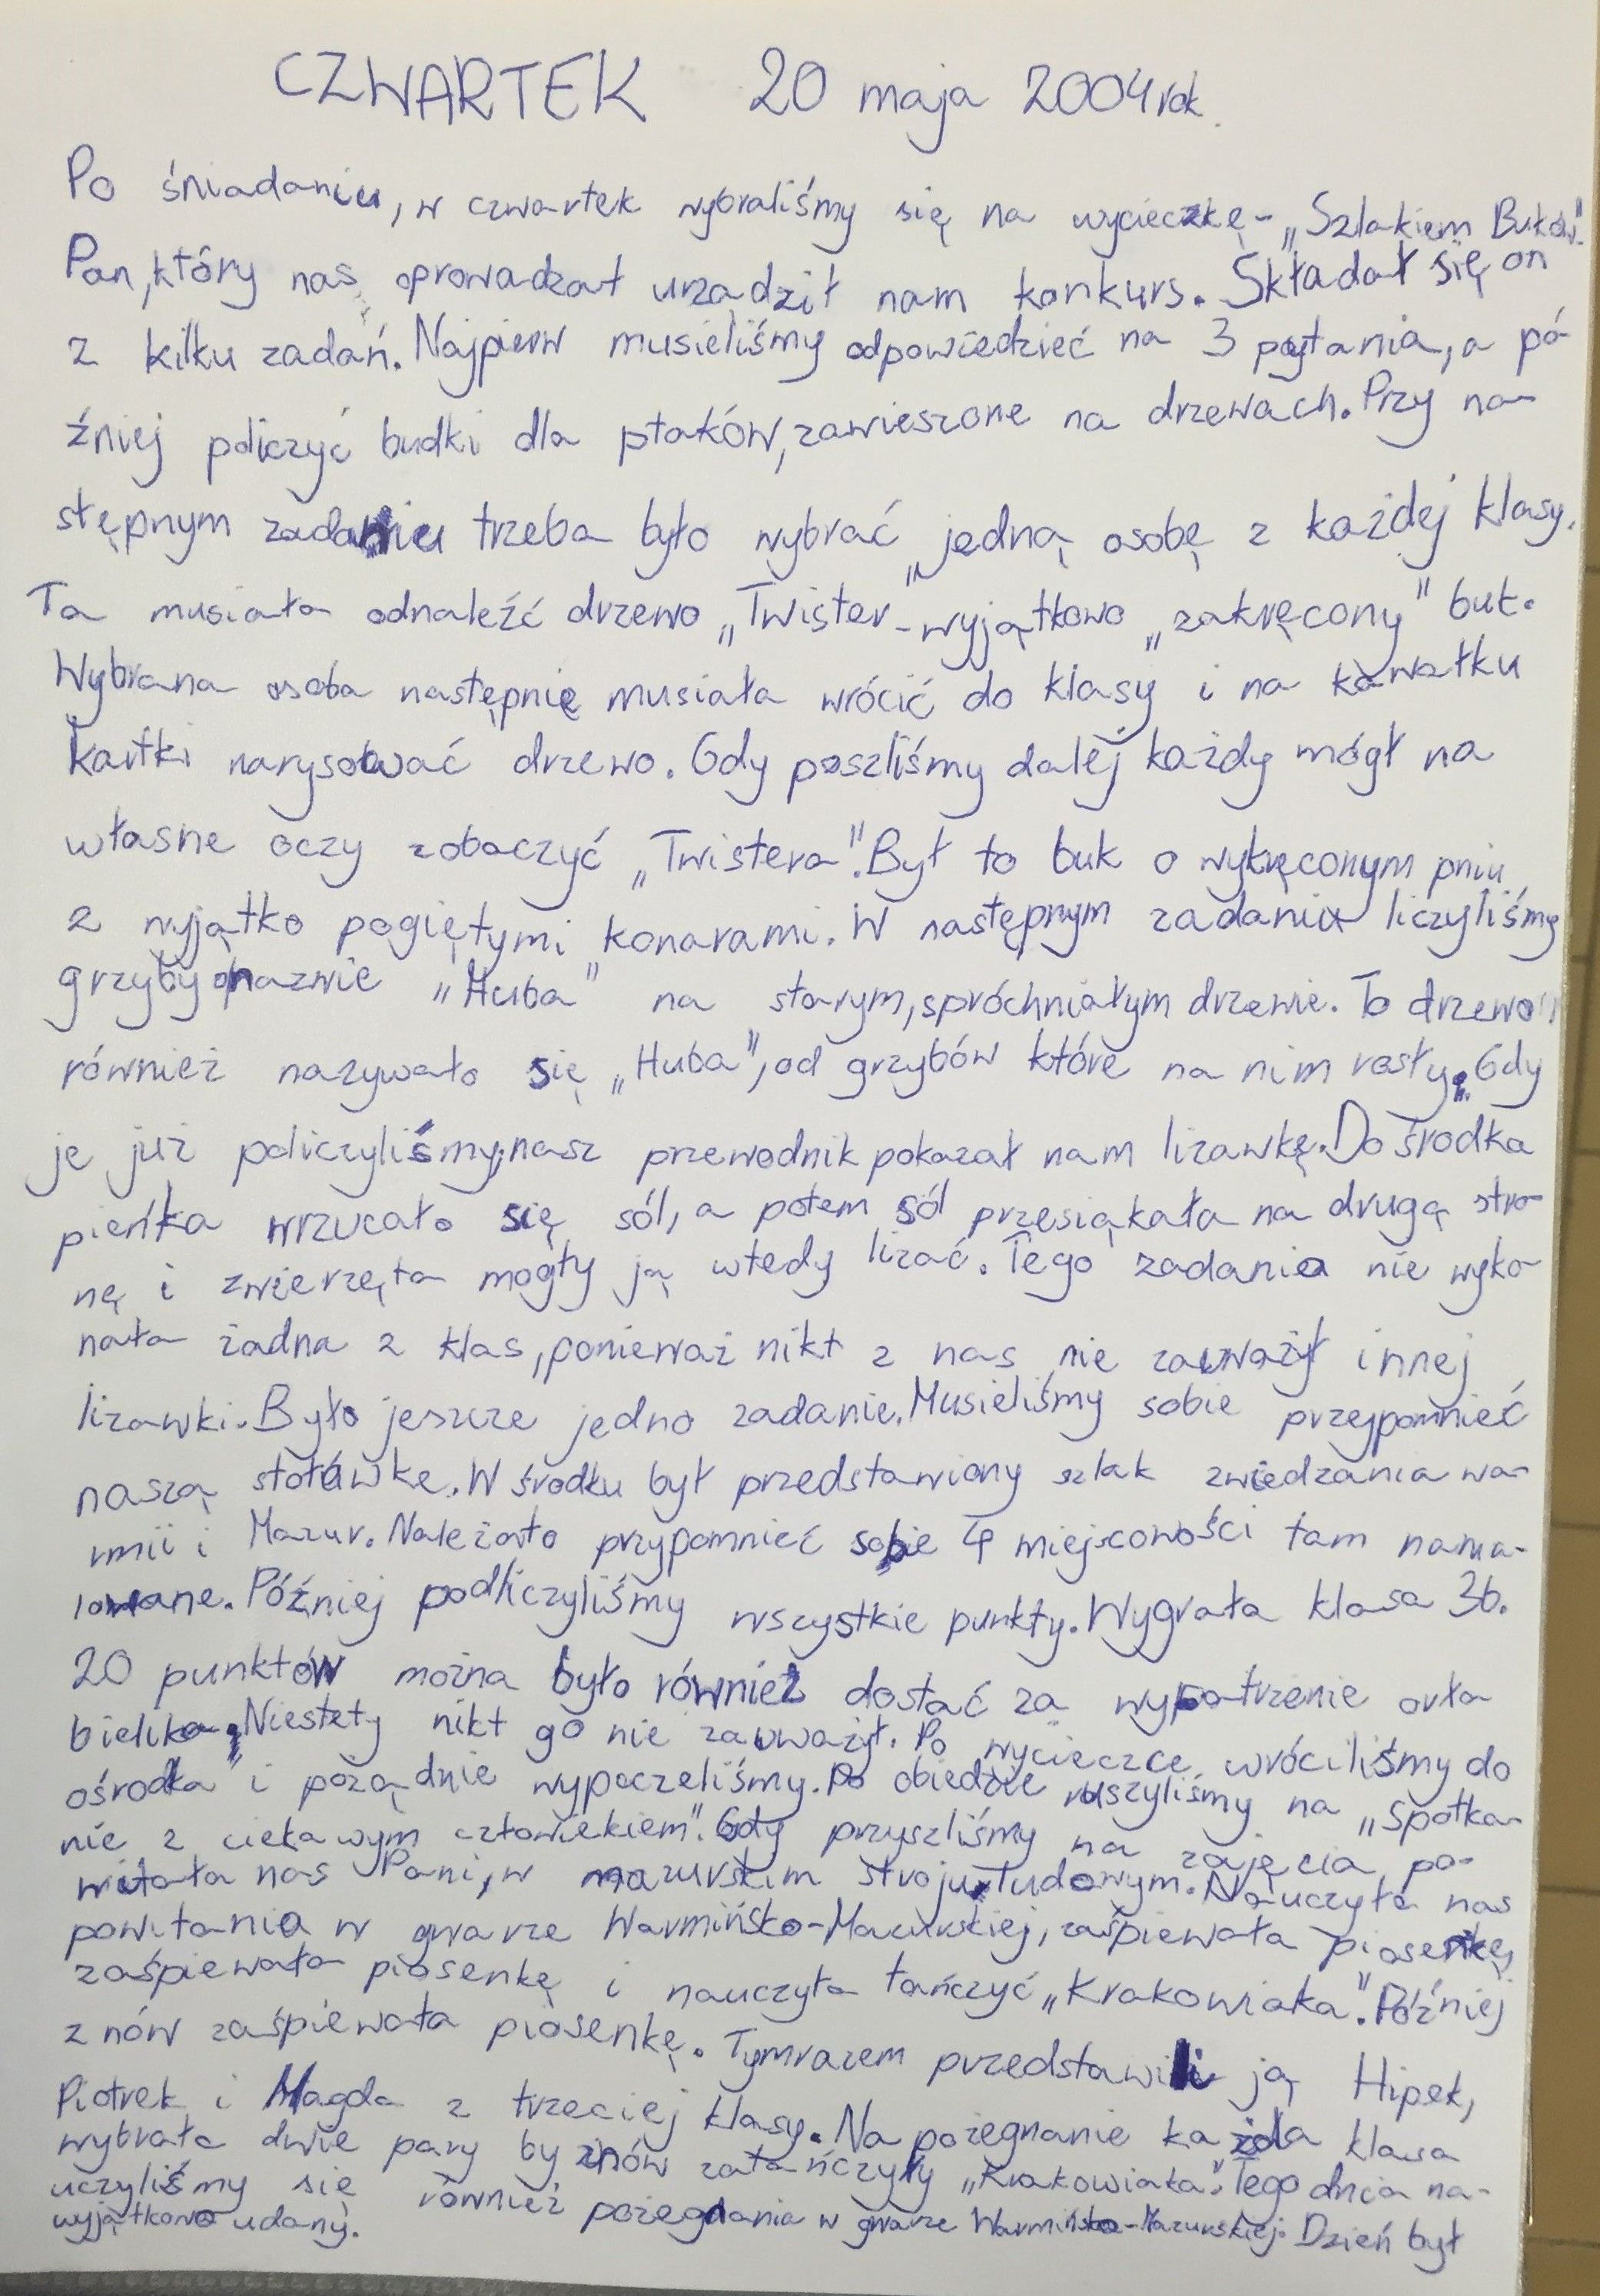 CZWARTEK 20 maja 2004 rok.
Po śniadaniu, w czwartek wybraliśmy się na wycieczkę - „Szlakiem Buków".
Pan, który nas oprowadzał urządził nam konkurs. Składał się on
z kilku zadań. Najpierw musieliśmy odpowiedzieć na 3 pytania, a pó-
źniej policzyć budki dla ptaków, zawieszone na drzewach. Przy na-
stępnym zadaniu trzeba było wybrać jedną osobę z każdej klasy.
Ta musiała odnaleźć drzewo „Twister" - wyjątkowo „zakręcony" buk.
Wybrana osoba następnie musiała wrócić do klasy i na kawałku
kartki narysować drzewo. Gdy poszliśmy dalej każdy mógł na
własne oczy zobaczyć „Twistera". Był to buk o wykręconym pniu
z wyjątko pogiętymi konarami. W następnym zadaniu liczyliśmy
grzyby o nazwie „Huba" na starym, spróchniałym drzewie. To drzewo
również nazywało się „Huba", od grzybów które na nim rosły. Gdy
je już policzyliśmy, nasz przewodnik pokazał nam lizawkę. Do środka
pieńka wrzucało się sól, a potem sól przesiąkała na drugą stro-
nę i zwierzęta mogły ją wtedy lizać. Tego zadania nie wyko-
nała żadna z klas, ponieważ nikt z nas nie zauważył innej
lizawki. Było jeszcze jedno zadanie. Musieliśmy sobie przypomnieć
naszą stołówkę. W środku był przedstawiony szlak zwiedzania wa-
rmii i Mazur. Należało przypomnieć sobie 4 miejscowości tam nama-
lowane. Później podliczyliśmy wszystkie punkty. Wygrała klasa 3b.
20 punktów można było również dostać za wypatrzenie orła
bielika. Niestety nikt go nie zauważył. Po wycieczce wróciliśmy do
ośrodka i pożądnie wypoczeliśmy. Po obiedzie ruszyliśmy na „Spotka-
nie z ciekawym człowiekiem". Gdy przyszliśmy na zajęcia po-
witała nas Pani, w mazurskim stroju ludowym. Nauczyła nas
powitania w gwarze Warmińsko-Mazurskiej, zaśpiewała piosenkę,
zaśpiewała piosenkę i nauczyła tańczyć „Krakowiaka". Później
znów zaśpiewała piosenkę. Tymrazem przedstawili ją Hipek,
Piotrek i Magda z trzeciej klasy. Na pożegnanie każda klasa
wybrała dwie pary by znów zatańczyły „Krakowiaka". Tego dnia na-
uczyliśmy się również pożegnania w gwarze Warmińsko-Mazurskiej. Dzień był
wyjątkowo udany.